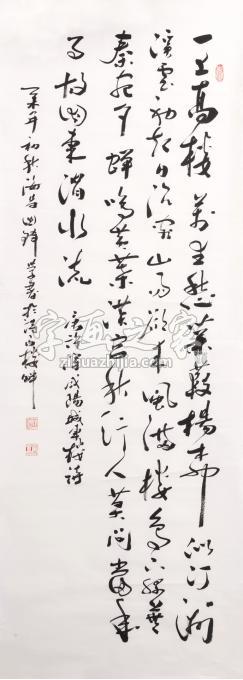 一上高楼万里愁蒹葭杨柳似汀洲
溪云初起日沉阁山雨欲来风满楼鸟下绿芜
秦苑夕蝉鸣黄叶汉宫秋行人莫问当年
事故国东来渭水流
唐许浑咸阳城东楼诗
字画之家
zihuazhijia.com